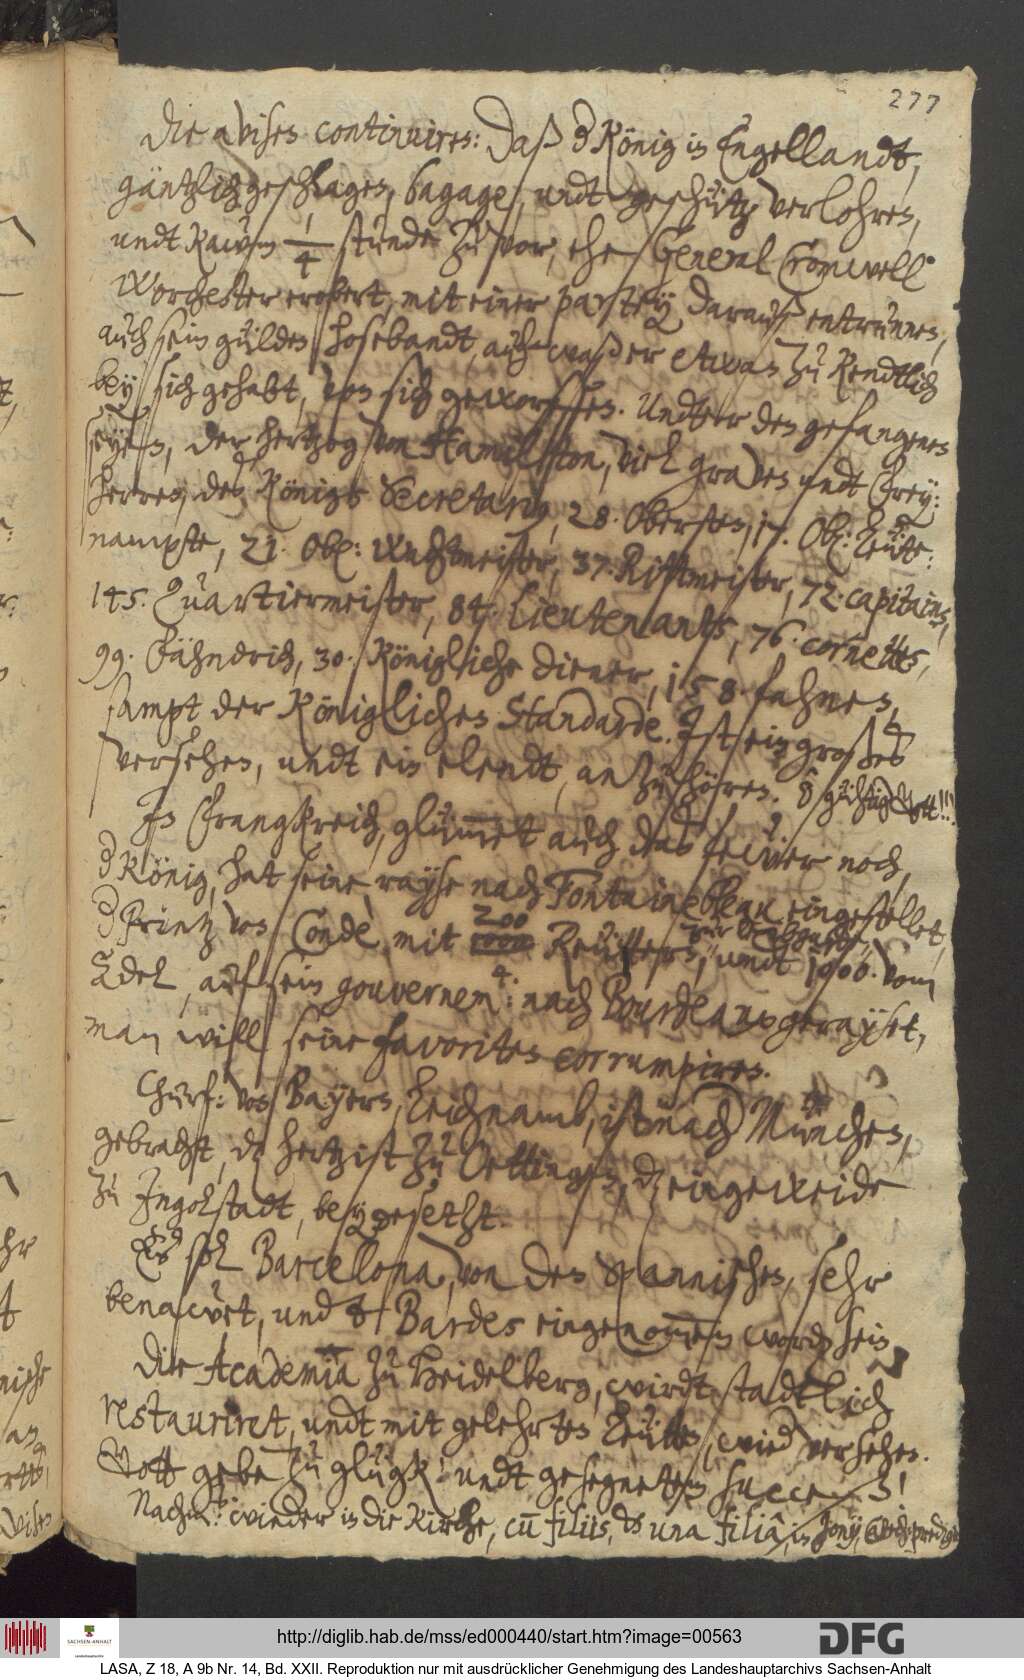 277
Die avisen continuiren: daß d König in Engellandt,
gäntzlich geschlagen, bagage, undt geschütz verlohren,
undt kaum 1/4 stunde zuvor, ehe General Cromwell
Worchester erobert, mit einer partey darauß entrunnen,
auch sein gülden hosebandt, auch waß er etwan zu Kendtlich
bey sich gehabt, von sich geworffen. Undter den gefangenen
seyen, der hertzog von Hamilton, viel graven undt Frey:
herren, des Königs Secretary, 28. Obersten, 17. Ob: Leüte:
nampte, 21. Ob: Wachtmeister, 37. Rittmeister, 72. capitains,
145. Quartiermeister, 84. Lieutenants, 76. cornettes,
99. Fähndrich, 30. Königliche diener, 158. fahnen,
sampt der Königlichen Standarde. Ist ein großes
versehen, undt ein elendt, anzuhören. ô gühtiger Gott!!!
In Franckreich, glümet auch das fewer noch,
d König, hat seine rayse nach Fontainebleau eingestellet,
d Printz von Condè, mit 200 Reüttern, undt 1900. vom
Adel, auf sein gouvernem: nach Bourdeaux gerayset,
man will seine favoriten corrumpiren.
Churf: von Bayern, Leichnamb, ist nach München,
gebracht, dz hertz ist zu Oettingen, dz eingeweide
zu Ingolstadt, beygesetzt.
Es sol Barcellona, von den Spannischen, sehr
benawet, und Bardes eingenommen worden sein.
Die Academia zu Heidelberg, wirdt stadtlich
restauriret, undt mit gelehrten Leütten, wieder versehen.
Gott gebe zu glück! undt gesegneten success!
Nachm: wieder in die Kirche, cum filiis, et una filiâ, in
http://diglib.hab.de/mss/ed000440/start.htm?image=00563
SACHSEN-ANHALT
DFG
LASA, Z 18, A 9b Nr. 14, Bd. XXII. Reproduktion nur mit ausdrücklicher Genehmigung des Landeshauptarchivs Sachsen-Anhalt